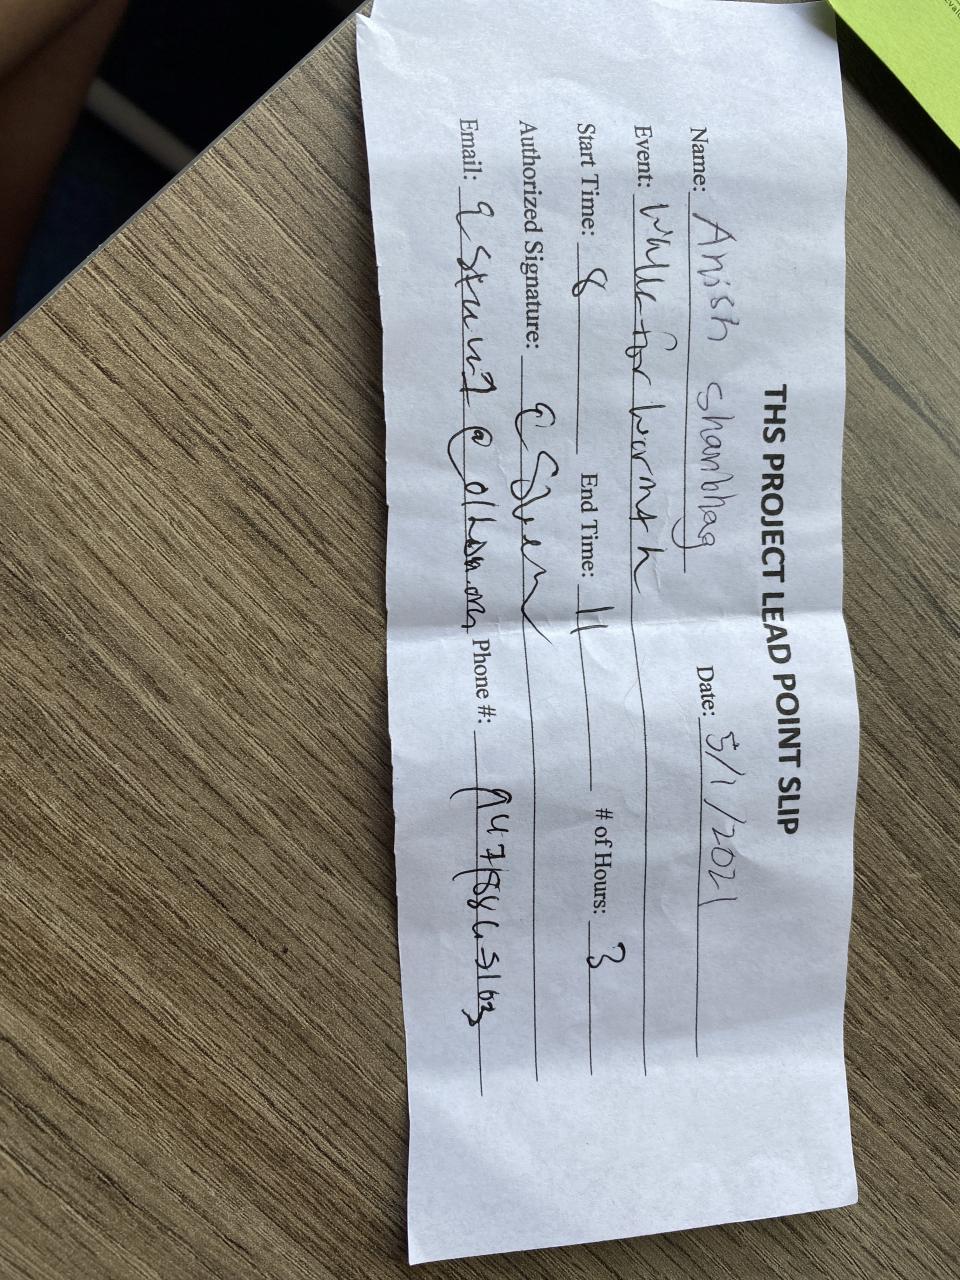 THS PROJECT LEAD POINT SLIP
Name: Anish Shanbhag Date: 5/1/2021
Event: Walk for Warmth
Start Time: 8 End Time: 11 # of Hours: 3
Authorized Signature:
Email: Phone #: